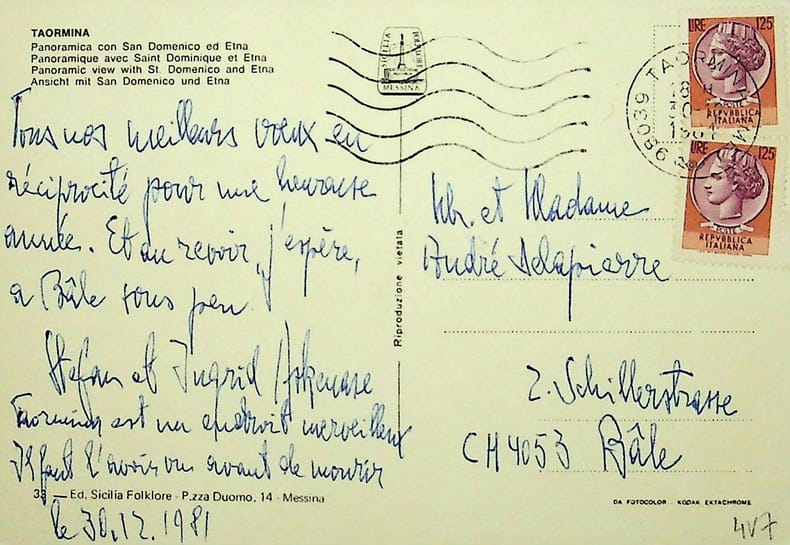 TAORMINA
Panoramica con San Domenico ed Etna
Panoramique avec Saint Dominique et Etna
Panoramic view with St. Domenico and Etna
Ansicht mit San Domenico und Etna
SICILIA
FOLKLORE
MESSINA
LIRE 125
POSTE
REPVBBLICA
ITALIANA
LIRE 125
POSTE
REPVBBLICA
ITALIANA
98039 TAORMINA
Tous nos meilleurs vœux en
réciprocité pour une heureuse
année. Et au revoir, j'espère,
a Bâle sous peu
Stefan et Ingrid Askenase
Taormina est un endroit merveilleux
Il faut l'avoir vu avant de mourir
le 30.12.1981
Riproduzione vietata
Mr. et Madame
André Delapierre
2. Schillerstrasse
CH 4053 Bâle
33 — Ed. Sicilia Folklore - P.zza Duomo, 14 - Messina
DA FOTOCOLOR - KODAK EKTACHROME
4V7